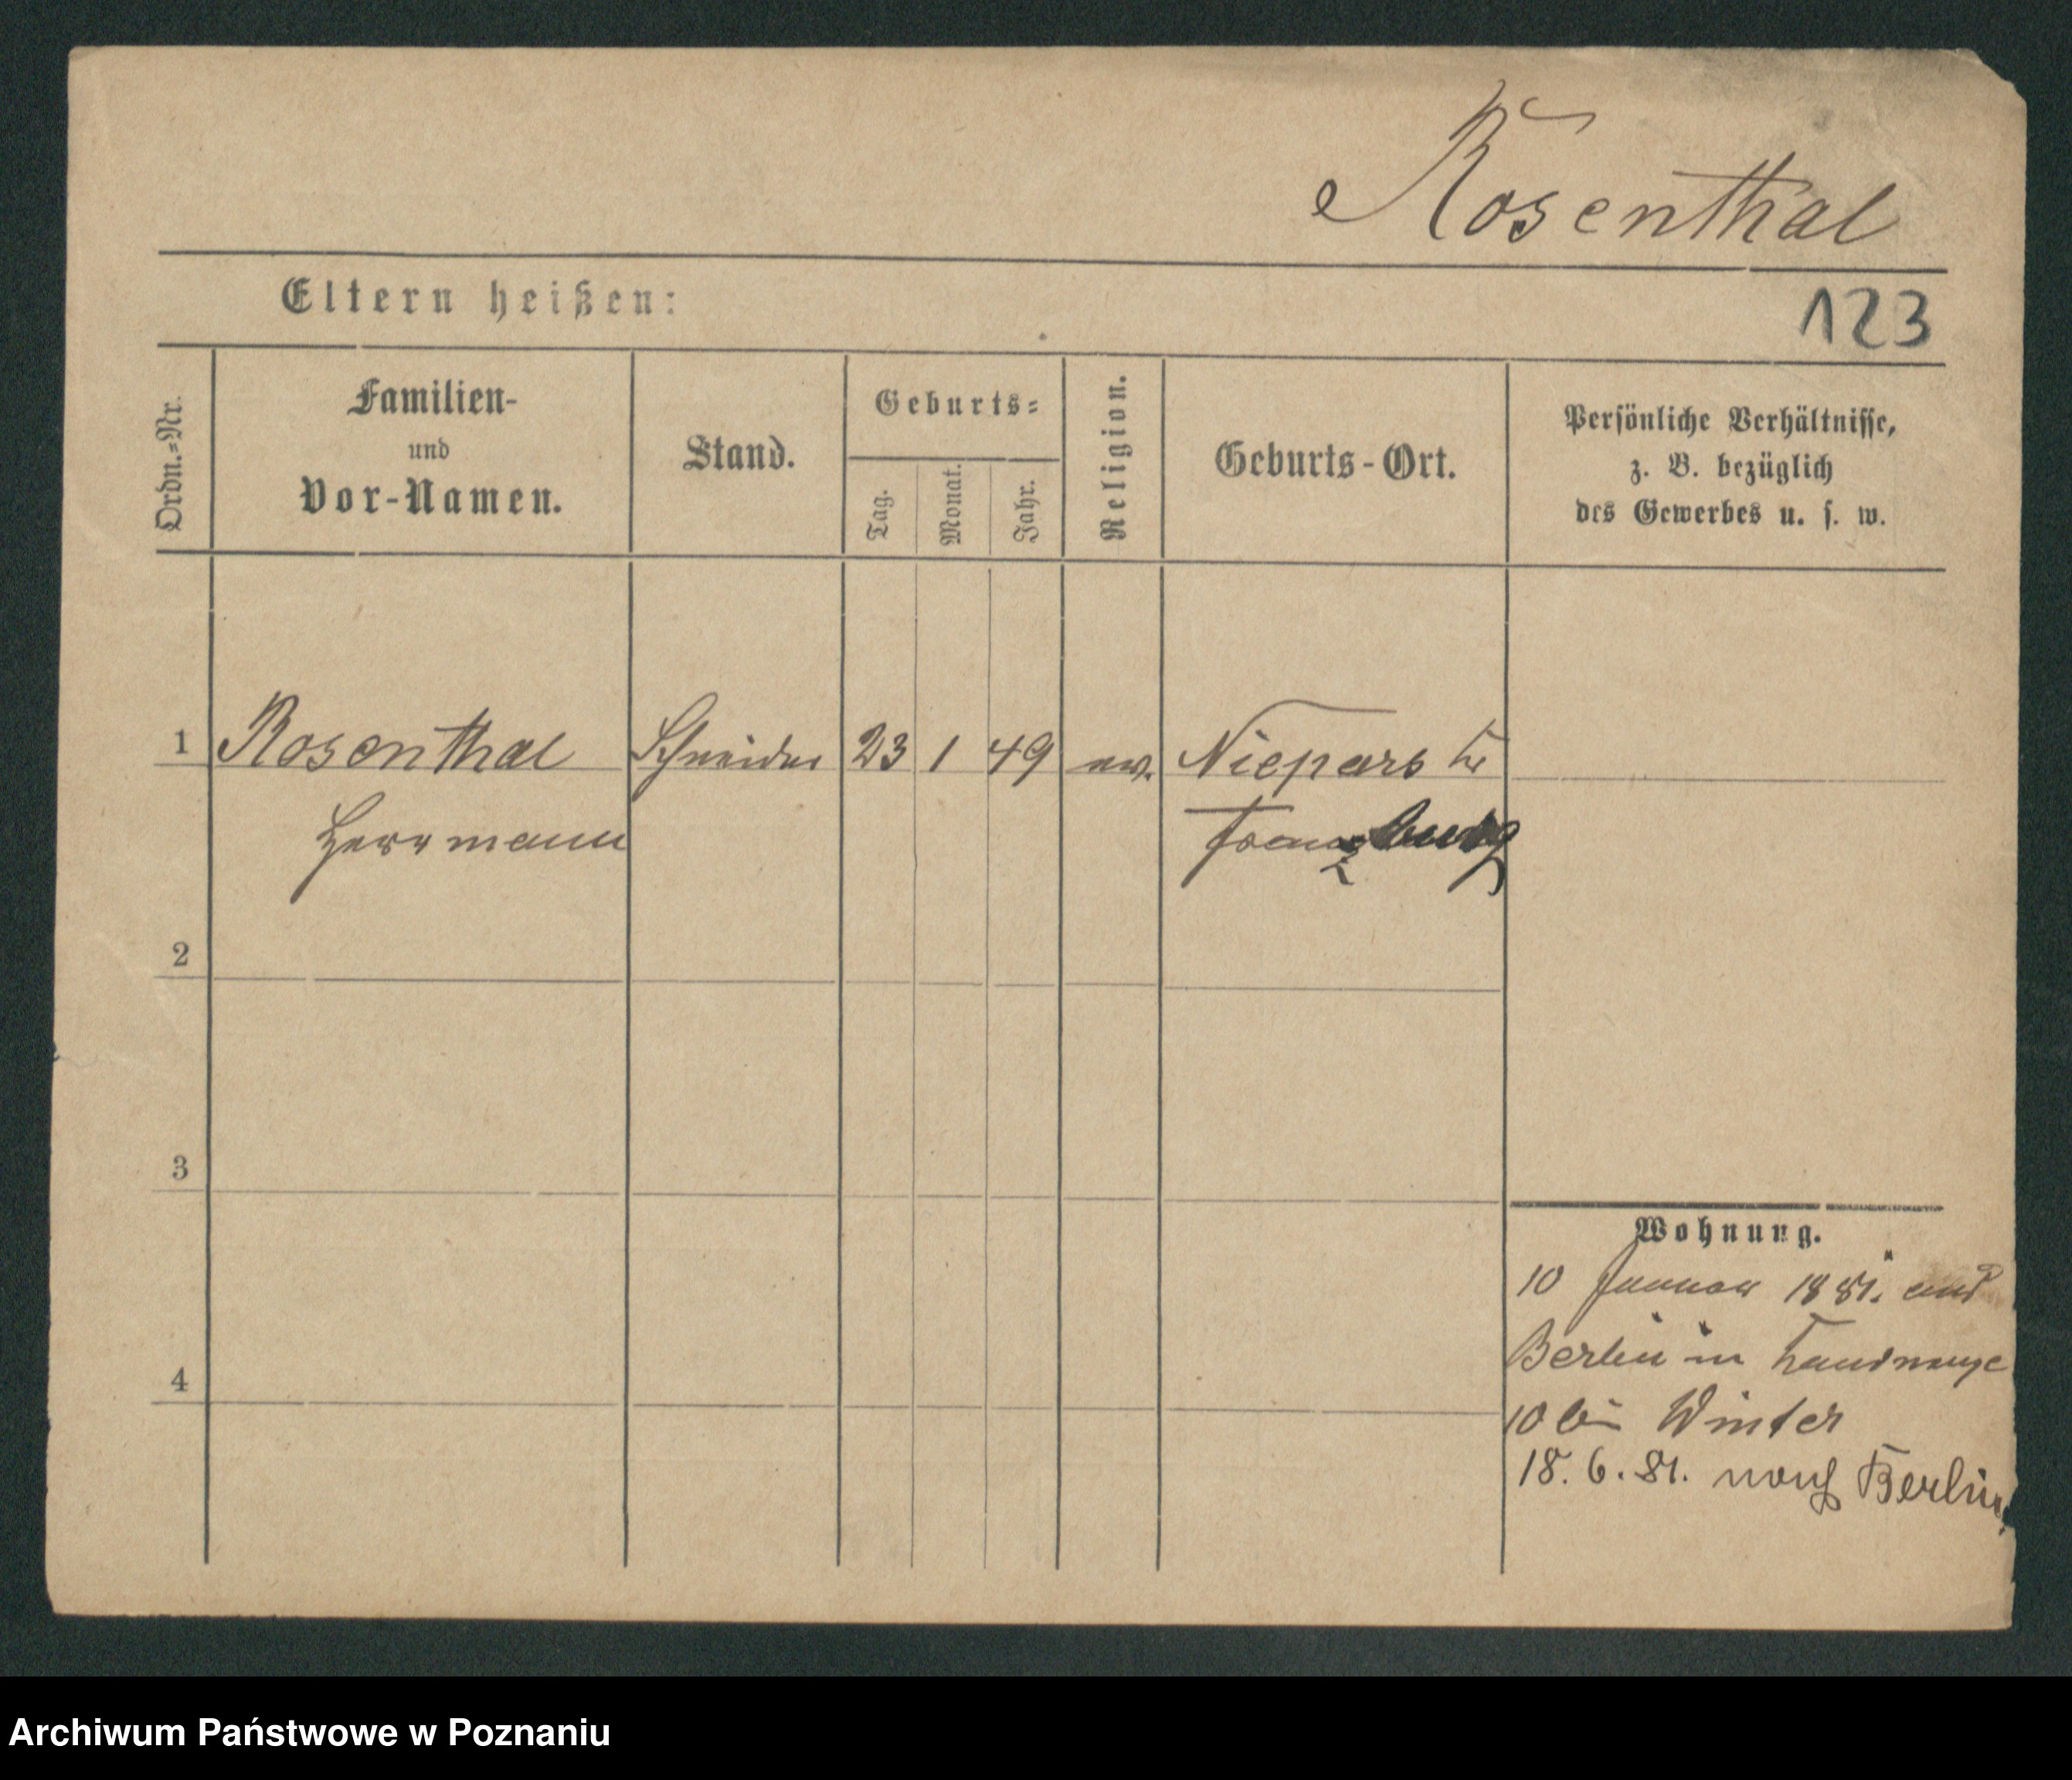 Rosenthal
Eltern heißen:
123
Ordn.-Nr.
Familien-
und
Vor-Namen.
Stand.
Geburts-
Tag.
Monat.
Jahr.
Religion.
Geburts-Ort.
Persönliche Verhältnisse,
z. B. bezüglich
des Gewerbes u. s. w.
1 Rosenthal Schneider 23 1 49 ev. Niepars Kr
Herrmann Franzburg
2
3
4
Wohnung.
10 Januar 1881. aus
Berlin in
10 bei Winter
18. 6. 81. nach Berlin
Archiwum Państwowe w Poznaniu